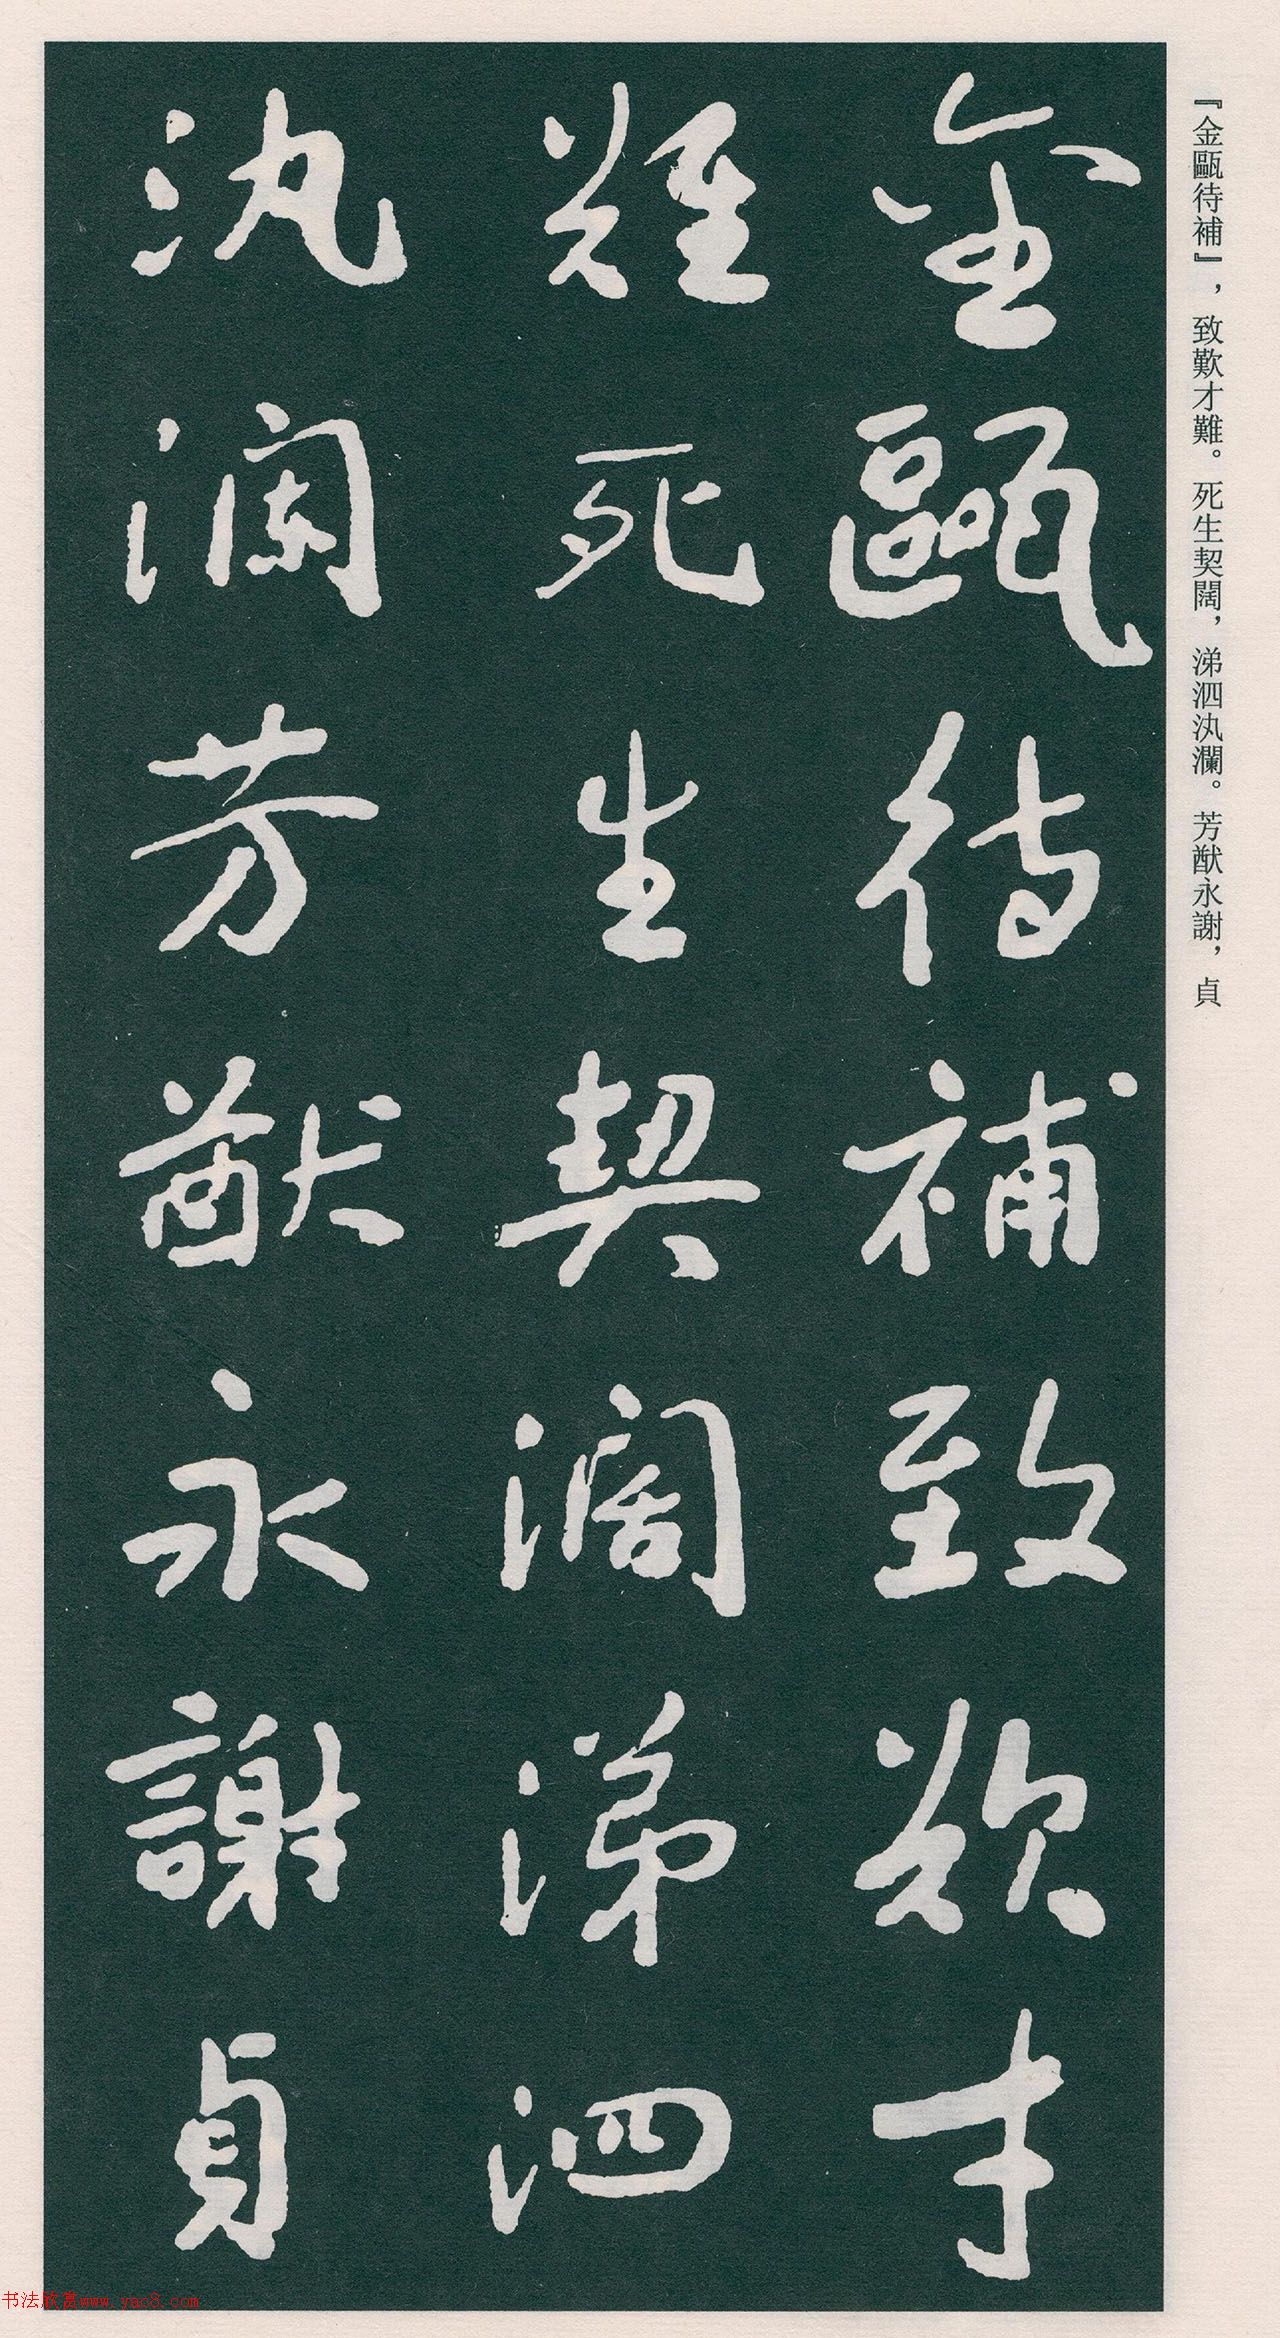 『金甌待補』，致歎才難。死生契闊，涕泗汍瀾。芳猷永謝，貞
金甌待補致歎才
難死生契濶涕泗
汍瀾芳猷永謝貞
书法欣赏www.yac8.com